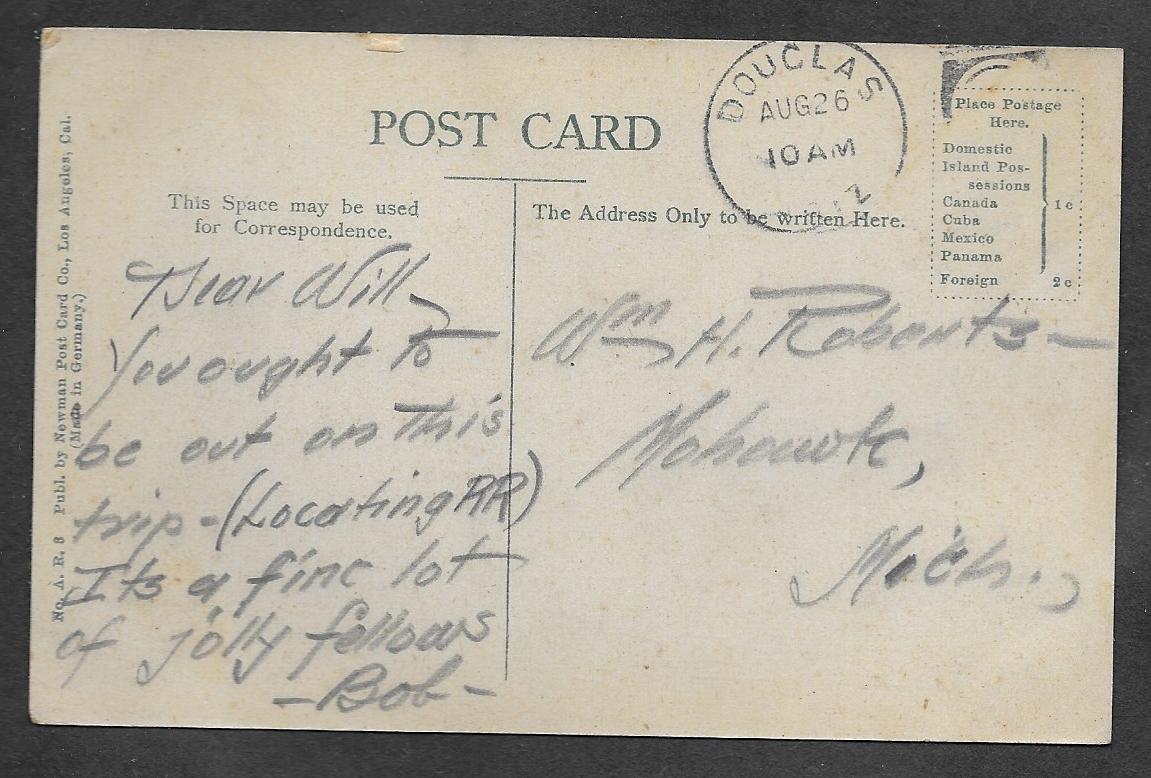 No. A. R. 8 Publ. by Newman Post Card Co., Los Angeles, Cal.
(Made in Germany.)
POST CARD
This Space may be used
for Correspondence.
The Address Only to be written Here.
DOUGLAS
AUG26
10AM
Place Postage
Here.
Domestic
Island Pos-
sessions
Canada
Cuba
Mexico
Panama
1c
Foreign 2c
Dear Will,
You ought to
be out on this
trip - (Locating RR)
Its a fine lot
of jolly fellows
- Bob -
Wm H. Roberts -
Mohawk,
Mich.,